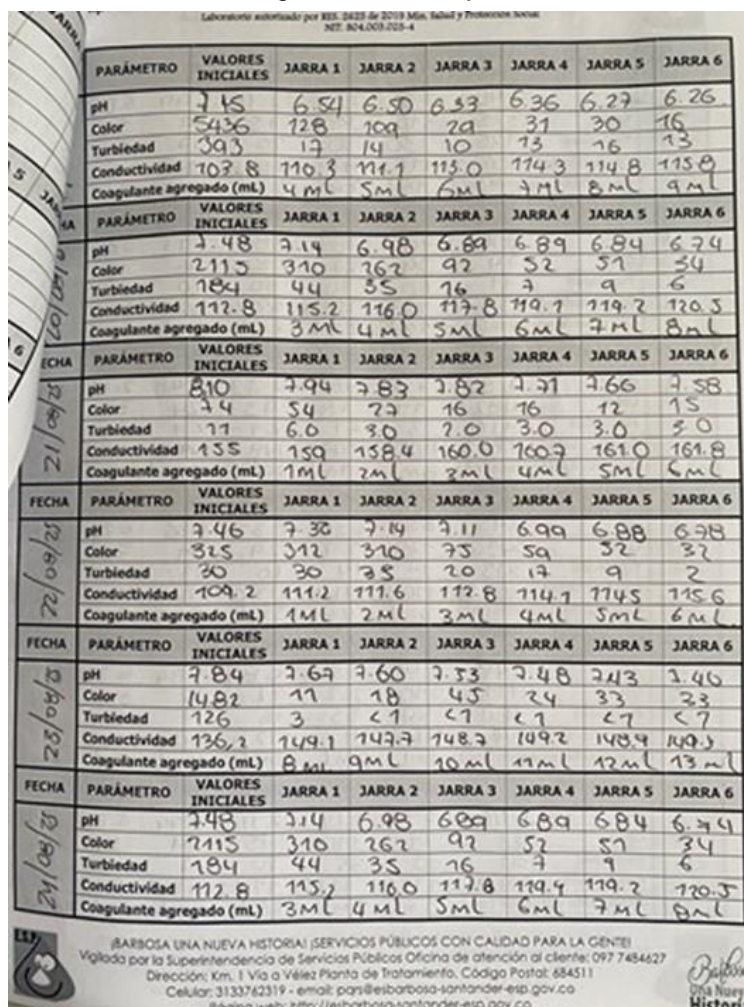 Laboratorio autorizado por RES. 2625 de 2019 Min. Salud y Protección Social
NIT. 804.003.025-4
PARÁMETRO VALORES INICIALES JARRA 1 JARRA 2 JARRA 3 JARRA 4 JARRA 5 JARRA 6
pH 7.45 6.54 6.50 6.33 6.36 6.27 6.26
Color 5436 128 109 29 31 30 16
Turbiedad 393 17 14 10 13 16 13
Conductividad 103.8 110.3 111.1 113.0 114.3 114.8 115.8
Coagulante agregado (mL) 4ml 5ml 6ml 7ml 8ml 9ml
PARÁMETRO VALORES INICIALES JARRA 1 JARRA 2 JARRA 3 JARRA 4 JARRA 5 JARRA 6
pH 7.48 7.14 6.98 6.89 6.89 6.84 6.74
Color 2115 310 262 92 52 51 34
Turbiedad 184 44 35 16 7 9 6
Conductividad 112.8 115.2 116.0 117.8 119.1 119.2 120.5
Coagulante agregado (mL) 3ml 4ml 5ml 6ml 7ml 8ml
FECHA PARÁMETRO VALORES INICIALES JARRA 1 JARRA 2 JARRA 3 JARRA 4 JARRA 5 JARRA 6
21/08/25
pH 8.10 7.94 7.83 7.82 7.71 7.66 7.58
Color 74 54 27 16 16 12 15
Turbiedad 11 6.0 3.0 2.0 3.0 3.0 3.0
Conductividad 155 159 158.4 160.0 160.7 161.0 161.8
Coagulante agregado (mL) 1ml 2ml 3ml 4ml 5ml 6ml
FECHA PARÁMETRO VALORES INICIALES JARRA 1 JARRA 2 JARRA 3 JARRA 4 JARRA 5 JARRA 6
22/08/25
pH 7.46 7.36 7.14 7.11 6.99 6.88 6.78
Color 325 312 310 75 59 52 32
Turbiedad 30 30 35 20 17 9 2
Conductividad 109.2 111.2 111.6 112.8 114.1 114.5 115.6
Coagulante agregado (mL) 1ml 2ml 3ml 4ml 5ml 6ml
FECHA PARÁMETRO VALORES INICIALES JARRA 1 JARRA 2 JARRA 3 JARRA 4 JARRA 5 JARRA 6
pH 7.84 7.67 7.60 7.53 7.48 7.43 7.40
Color 1482 11 18 45 24 33 23
Turbiedad 126 3 <1 <1 <1 <1 <1
Conductividad 136,2 149.1 147.7 148.7 149.2 148.9 149.3
Coagulante agregado (mL) 8ml 9ml 10ml 11ml 12ml 13ml
FECHA PARÁMETRO VALORES INICIALES JARRA 1 JARRA 2 JARRA 3 JARRA 4 JARRA 5 JARRA 6
pH 7.48 7.14 6.98 6.89 6.89 6.84 6.74
Color 2115 310 262 92 52 51 34
Turbiedad 184 44 35 16 7 9 6
Conductividad 112.8 115.2 116.0 117.8 119.4 119.2 120.5
Coagulante agregado (mL) 3ml 4ml 5ml 6ml 7ml 8ml
¡BARBOSA UNA NUEVA HISTORIA! ¡SERVICIOS PÚBLICOS CON CALIDAD PARA LA GENTE!
Vigilada por la Superintendencia de Servicios Públicos Oficina de atención al cliente: 097 7484627
Dirección: Km. 1 Vía a Vélez Planta de Tratamiento. Código Postal: 684511
Celular: 3133762319 - email: pqrs@esbarbosa-santander-esp.gov.co
Página web: http://esbarbosa-santander-esp.gov.co
Una Nueva
Histor